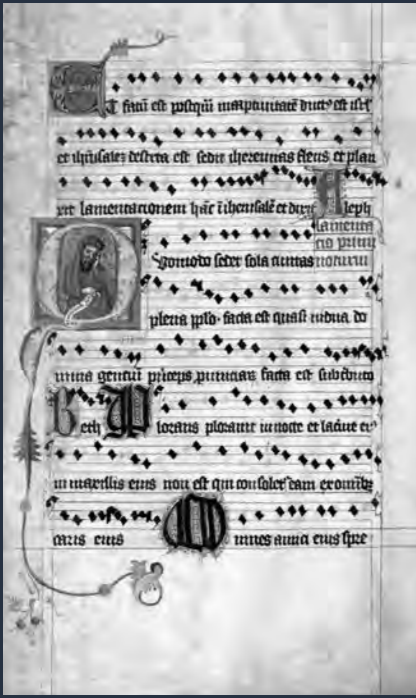 Et factū est postqū in captiuitatē duct⁹ est isrl
et ihrusalez deserta est sedit iheremias flens et plan
xit lamentacionem hāc ī iherusalē et dixit Aleph
lamenta
cio primi
nocturni
Quomodo sedet sola ciuitas
plena pplo· facta est quasi uidua do
mina genciū pⁱnceps puinciaꝝ facta est sub tributo
Beth Plorans plorauit in nocte et lacⁱme ei⁹
in maxillis eius non est qui consolet' eam ex omnibꝫ
caris eius Omnes amici eius spre